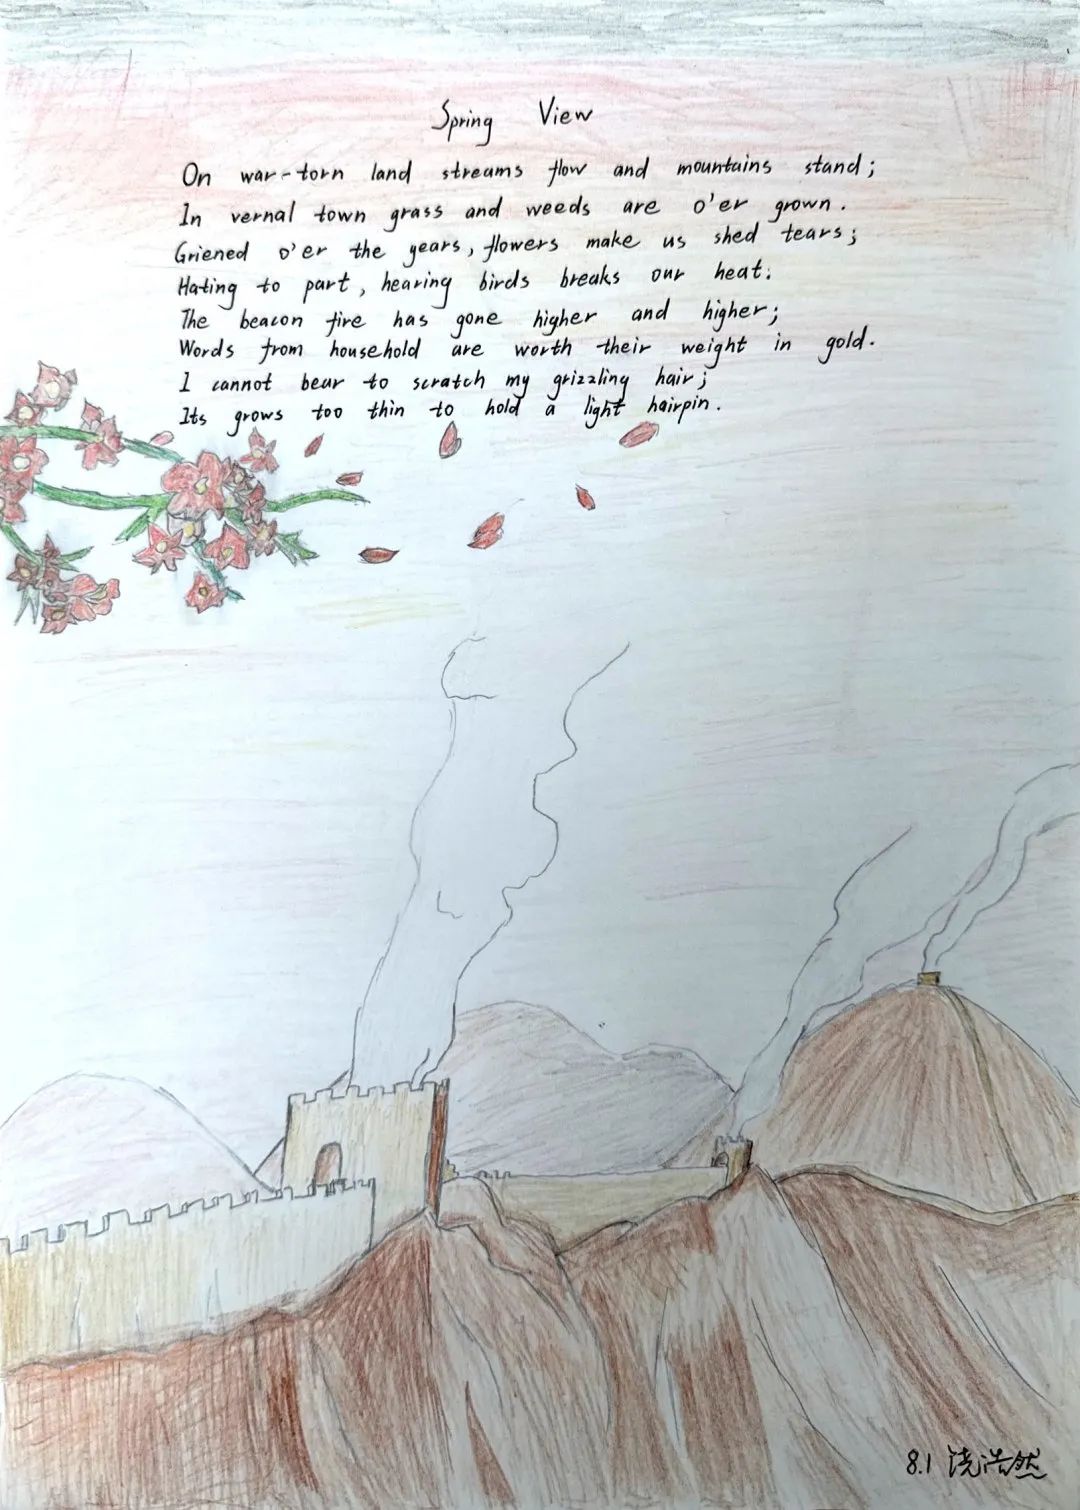 Spring View
On war-torn land streams flow and mountains stand;
In vernal town grass and weeds are o'er grown.
Griened o'er the years, flowers make us shed tears;
Hating to part, hearing birds breaks our heat.
The beacon fire has gone higher and higher;
Words from household are worth their weight in gold.
I cannot bear to scratch my grizzling hair;
Its grows too thin to hold a light hairpin.
8.1 饶浩然